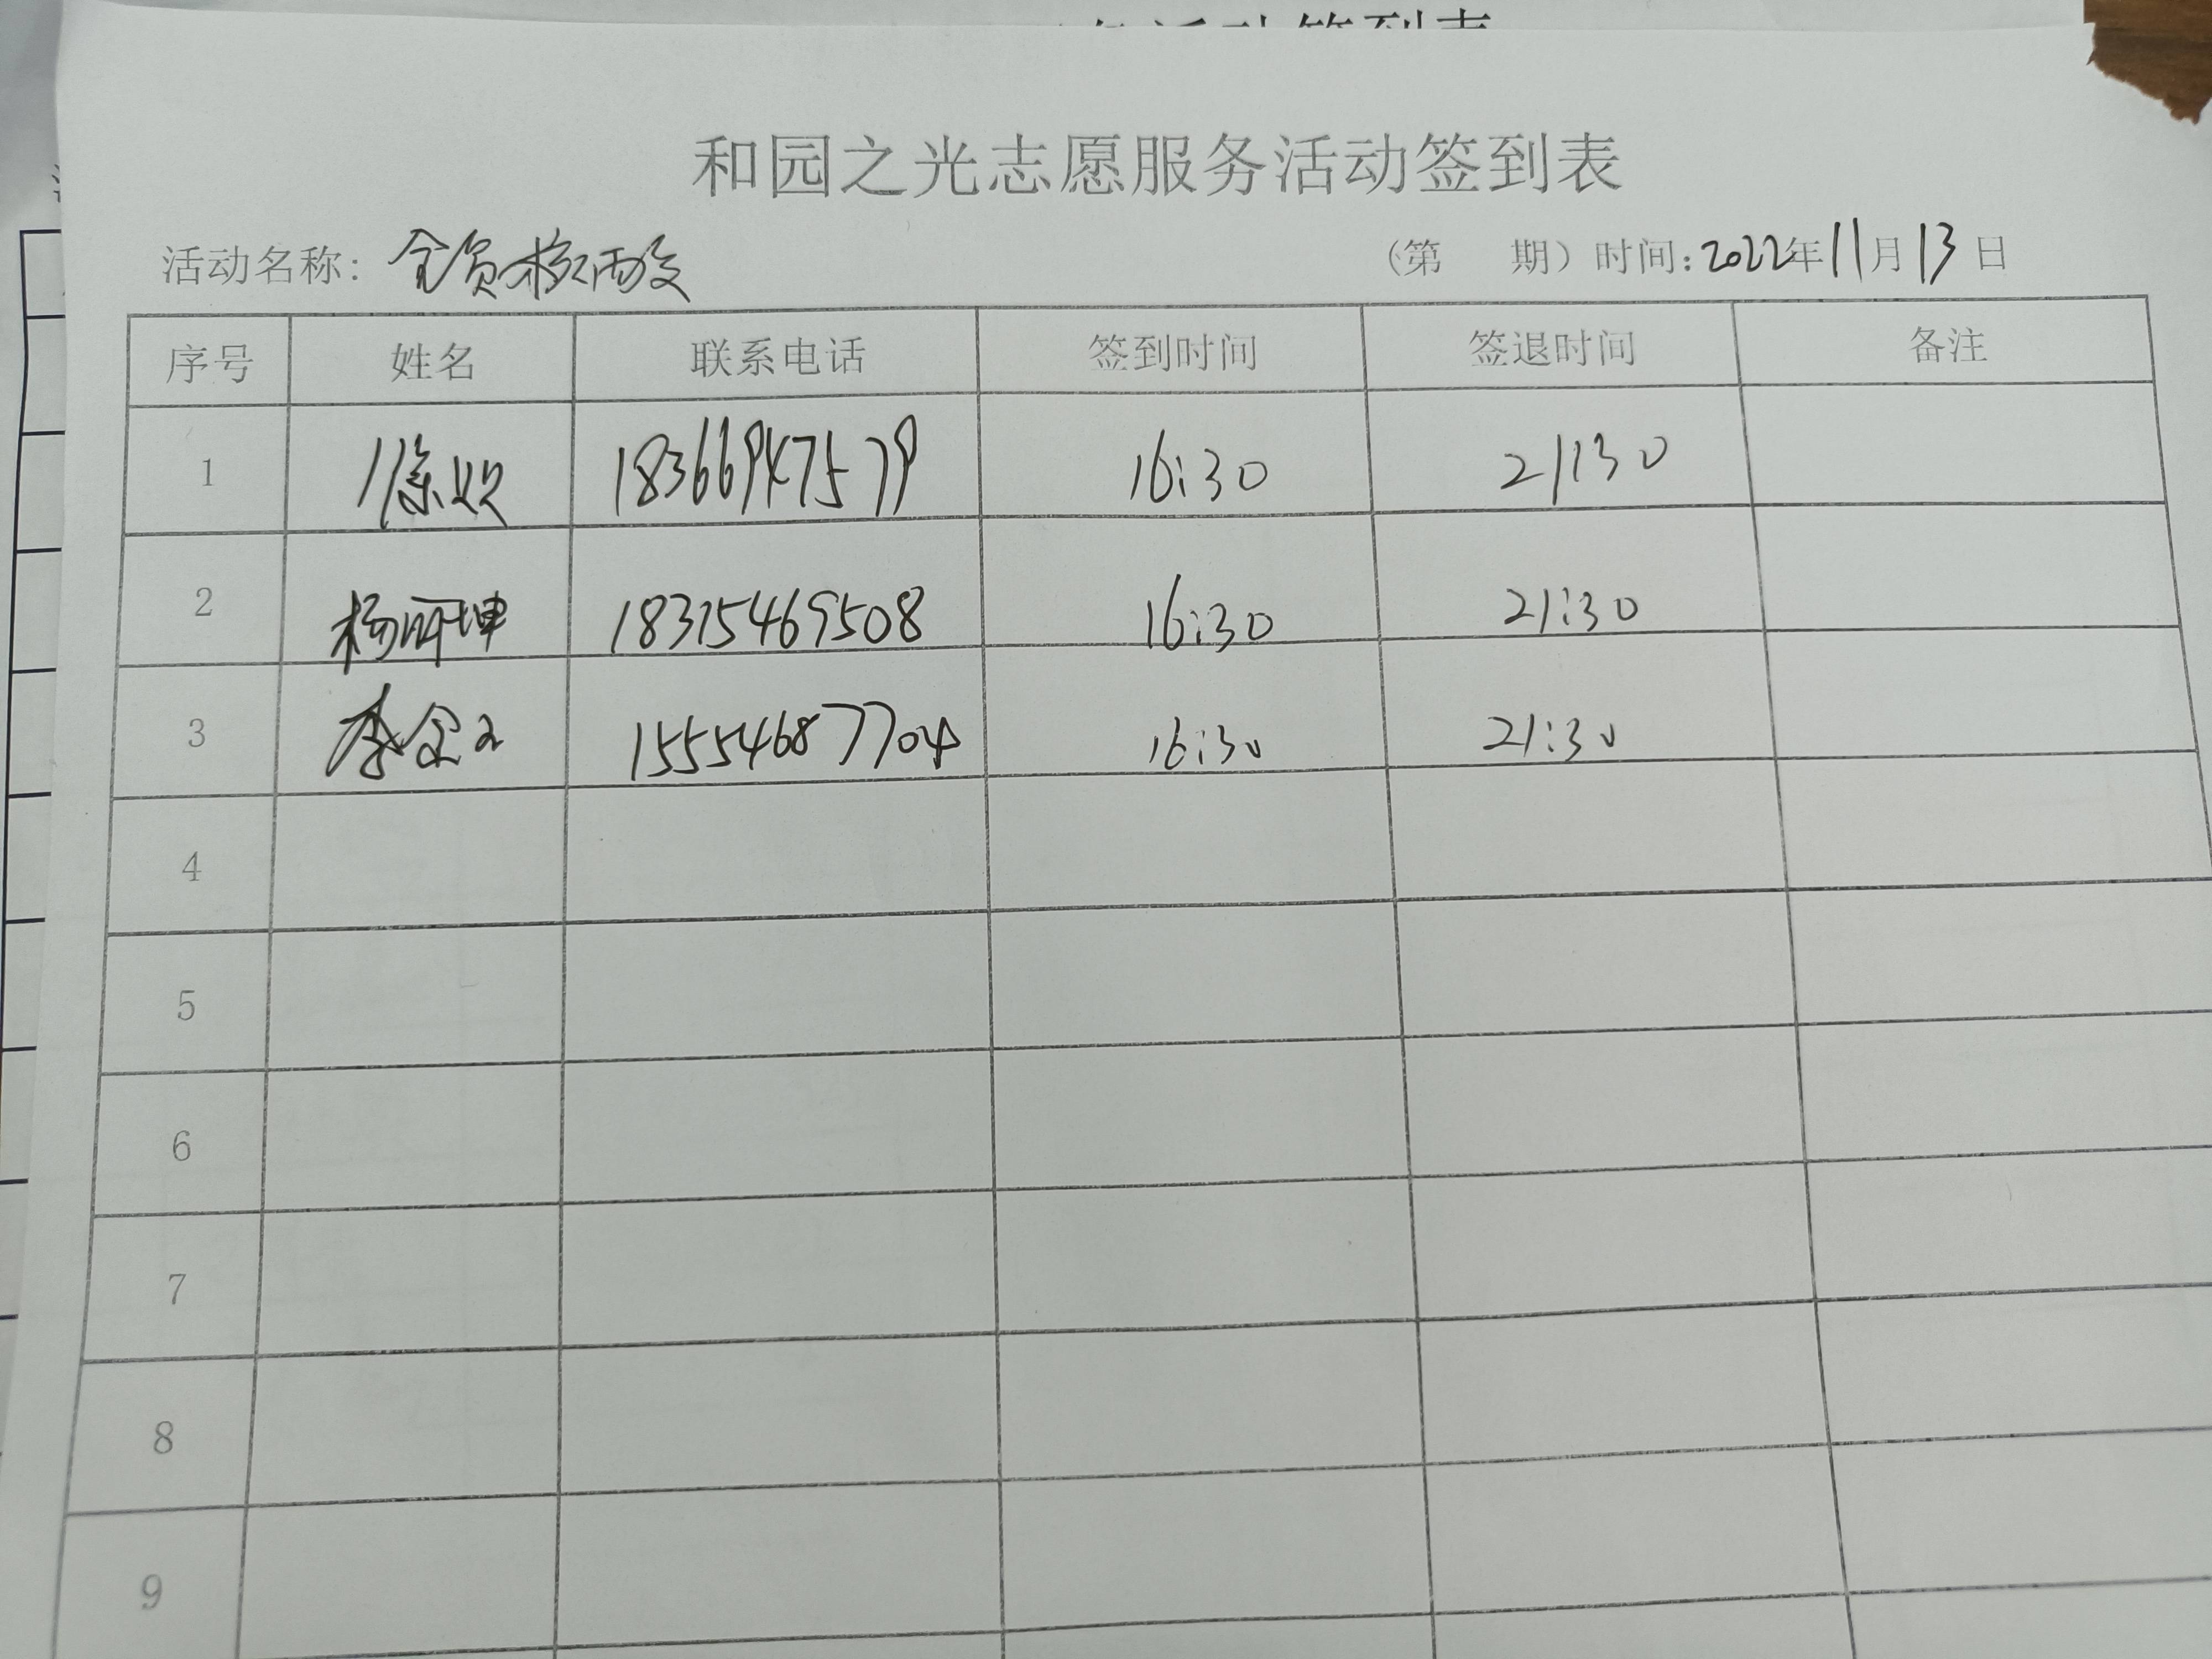 和园之光志愿服务活动签到表
活动名称: 全员核酸 (第 期) 时间: 2022年11月13日
序号 姓名 联系电话 签到时间 签退时间 备注
1 徐 18366947579 16:30 21:30
2 杨 坤 18315469508 16:30 21:30
3 李金 15554687704 16:30 21:30
4
5
6
7
8
9